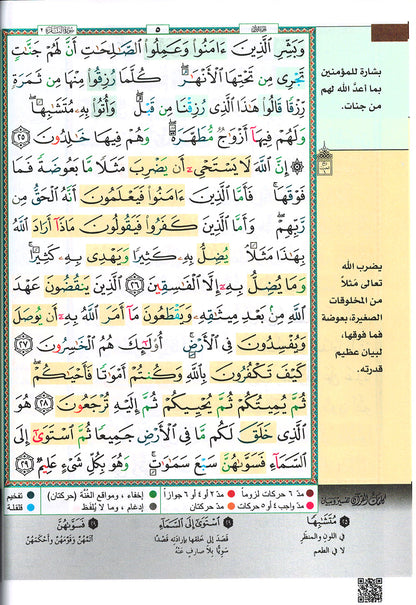 سورة البقرة ٢
٥
وَبَشِّرِ الَّذِينَ ءَامَنُوا وَعَمِلُوا الصَّـٰلِحَـٰتِ أَنَّ لَهُمْ جَنَّـٰتٍ
تَجْرِى مِن تَحْتِهَا الْأَنْهَـٰرُ ۖ كُلَّمَا رُزِقُوا مِنْهَا مِن ثَمَرَةٍ
رِّزْقًا قَالُوا هَـٰذَا الَّذِى رُزِقْنَا مِن قَبْلُ ۖ وَأُتُوا بِهِۦ مُتَشَـٰبِهًا ۖ
وَلَهُمْ فِيهَآ أَزْوَٰجٌ مُّطَهَّرَةٌ ۖ وَهُمْ فِيهَا خَـٰلِدُونَ ٢٥
۞ إِنَّ اللَّهَ لَا يَسْتَحْىِۦٓ أَن يَضْرِبَ مَثَلًا مَّا بَعُوضَةً فَمَا
فَوْقَهَا ۚ فَأَمَّا الَّذِينَ ءَامَنُوا فَيَعْلَمُونَ أَنَّهُ الْحَقُّ مِن
رَّبِّهِمْ ۖ وَأَمَّا الَّذِينَ كَفَرُوا فَيَقُولُونَ مَاذَآ أَرَادَ اللَّهُ
بِهَـٰذَا مَثَلًا ۘ يُضِلُّ بِهِۦ كَثِيرًا وَيَهْدِى بِهِۦ كَثِيرًا ۚ
وَمَا يُضِلُّ بِهِۦٓ إِلَّا الْفَـٰسِقِينَ ٢٦ الَّذِينَ يَنقُضُونَ عَهْدَ
اللَّهِ مِن بَعْدِ مِيثَـٰقِهِۦ وَيَقْطَعُونَ مَآ أَمَرَ اللَّهُ بِهِۦٓ أَن يُوصَلَ
وَيُفْسِدُونَ فِى الْأَرْضِ ۚ أُولَـٰٓئِكَ هُمُ الْخَـٰسِرُونَ ٢٧
كَيْفَ تَكْفُرُونَ بِاللَّهِ وَكُنتُمْ أَمْوَٰتًا فَأَحْيَـٰكُمْ ۖ
ثُمَّ يُمِيتُكُمْ ثُمَّ يُحْيِيكُمْ ثُمَّ إِلَيْهِ تُرْجَعُونَ ٢٨ هُوَ
الَّذِى خَلَقَ لَكُم مَّا فِى الْأَرْضِ جَمِيعًا ثُمَّ اسْتَوَىٰٓ إِلَى
السَّمَآءِ فَسَوَّىٰهُنَّ سَبْعَ سَمَـٰوَٰتٍ ۚ وَهُوَ بِكُلِّ شَىْءٍ عَلِيمٌ ٢٩
بشارة للمؤمنين
بما أعدَّ الله لهم
من جنات.
يضرب الله
تعالى مَثلاً
من المخلوقات
الصغيرة، بعوضة
فما فوقها،
لبيان عظيم
قدرته.
مدّ ٦ حركات لزوماً
مدّ ٢ أو ٤ أو ٦ جوازاً
إخفاء، ومواقع الغُنَّة (حركتان)
تفخيم
مدّ واجب ٤ أو ٥ حركات
مدّ حركتان
إدغام، وما لا يُلفَظ
قلقلة
٢٥ مُتَشَـٰبِهًا
في اللون والمنظر
لا في الطعم
٢٩ اسْتَوَىٰ إِلَى السَّمَاءِ
قَصَدَ إلى خلقها بإرادته قَصْدًا
سَوِيًّا بلا صارفٍ عنهُ
٢٩ فَسَوَّىٰهُنَّ
أَتَمَّهُنَّ وقَوَّمَهُنَّ وأحْكَمَهُنَّ